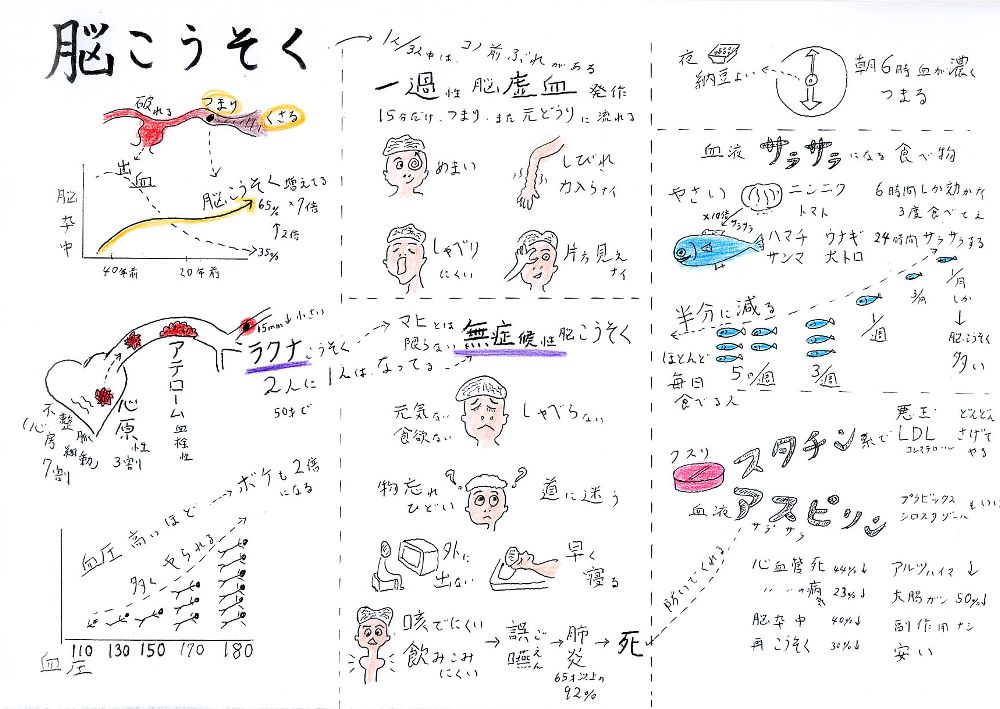 脳こうそく
破れる
つまり
くさる
出血
脳卒中
脳こうそく 増えてる
65% ×7倍
↑2倍
35%
40年前
20年前
15mm↓小さい
ラクナこうそく
2人に1人は、なってる
50才で
アテローム血栓性
心原性
3割
不整脈
(心房細動)
7割
ボケも2倍
になる
血圧 高い ほど
多く やられる
110 130 150 170 180
血圧
1人/3人中は、コノ前ぶれがある
一過性脳虚血発作
15分だけ、つまり、また元どうりに流れる
めまい
しびれ
力入らナイ
しゃべり
にくい
片方見え
ナイ
マヒとは
限らない
無症候性脳こうそく
元気ない
食欲ない
しゃべらない
物忘れ
ひどい
? ?
道に迷う
外に
出ない
早く
寝る
咳でにくい
飲みこみ
にくい
→ 誤嚥
ごえん
→ 肺炎 → 死
65才以上の
92%
夜
納豆よい
朝6時血が濃く
つまる
血液 サラサラになる食べ物
やさい
ニンニク
トマト
6時間しか効かない
3度食べてえ
×10倍
サラサラ
ハマチ ウナギ
サンマ 大トロ
24時間サラサラする
半分に減る
ほとんど
毎日
食べる人
5コ/週
3/週
1/週
3/月
1/月
しか
↓
脳こうそく
多い
クスリ
スタチン系で
悪玉
LDL
コレステロール
どんどん
さげて
やる
血液
アスピリン
サラサラ
プラビックス
シロスタゾール
もいい
防いでくれる
心血管死 44%↓
〃 〃の病気 23%↓
脳卒中 40%↓
再こうそく 30%↓
アルツハイマ↓
大腸ガン 50%↓
副作用ナシ
安い